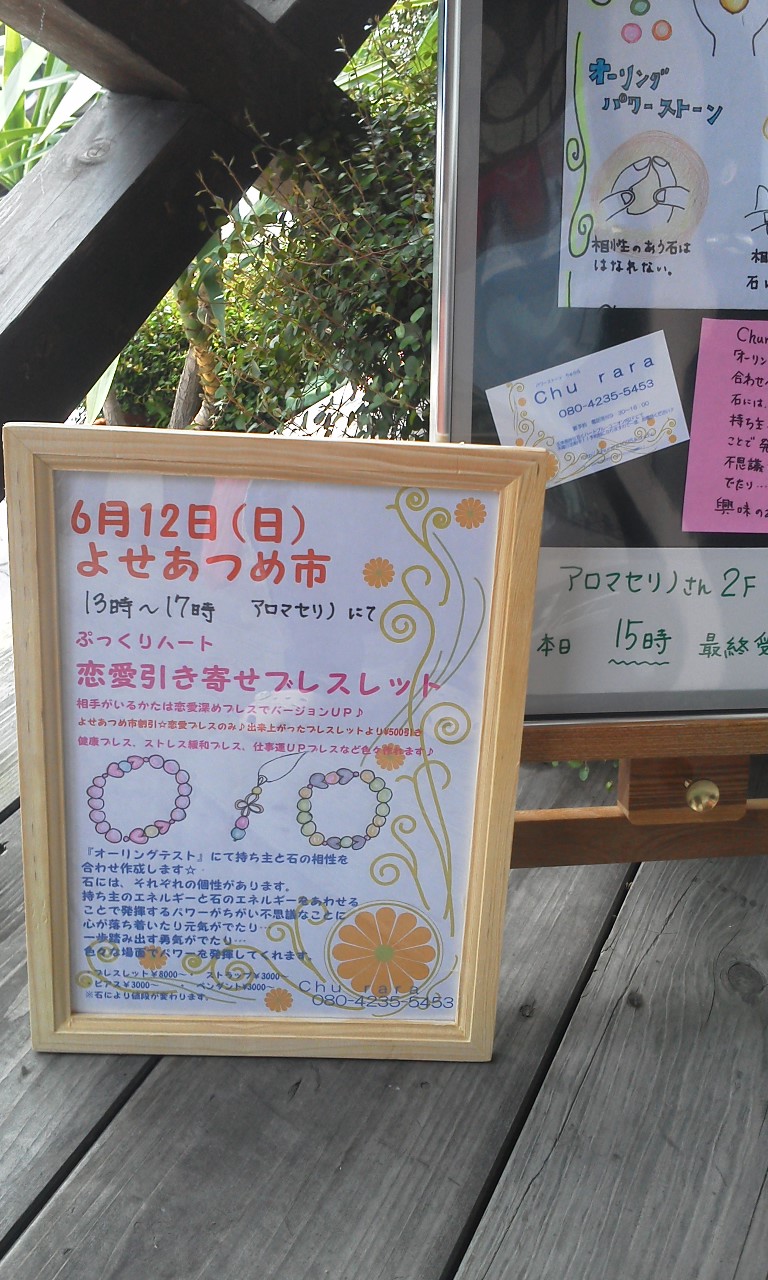 オーリング
パワーストーン
相性のあう石は
はなれない。
Chu rara
080-4235-5453
オーリン
合わせ
石には、
持ち主
ことで発
不思議
でたり…
興味の
アロマセリノさん 2F
本日 15時 最終受
6月12日(日)
よせあつめ市
13時～17時 アロマセリノ にて
ぷっくりハート
恋愛引き寄せブレスレット
相手がいるかたは恋愛深めブレスでバージョンUP♪
よせあつめ市割引☆恋愛ブレスのみ♪出来上がったブレスレットより¥500引き
健康ブレス、ストレス緩和ブレス、仕事運UPブレスなど色々作れます♪
『オーリングテスト』にて持ち主と石の相性を
合わせ作成します☆
石には、それぞれの個性があります。
持ち主のエネルギーと石のエネルギーをあわせる
ことで発揮するパワーがちがい不思議なことに
心が落ち着いたり元気がでたり…
一歩踏み出す勇気がでたり…
色々な場面でパワーを発揮してくれます。
ブレスレット¥6000～ ・ ストラップ¥3000～
ピアス¥3000～ ・ ペンダント¥3000～
※石により値段が変わります。
Chu rara
080-4235-5453